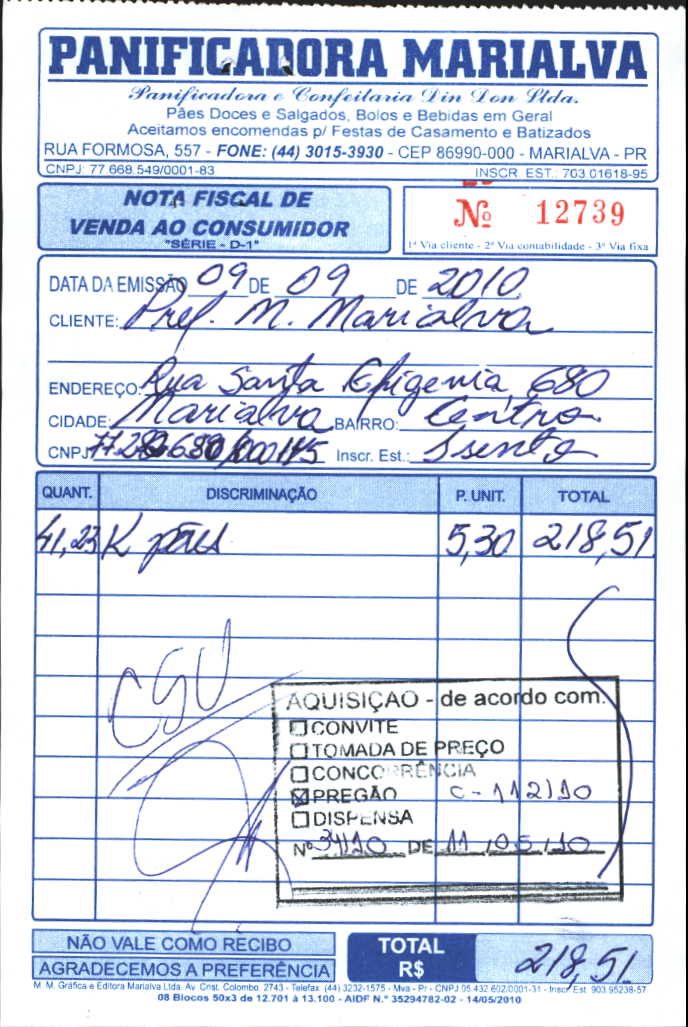 PANIFICADORA MARIALVA
Panificadora e Confeitaria Din Don Ltda.
Pães Doces e Salgados, Bolos e Bebidas em Geral
Aceitamos encomendas p/ Festas de Casamento e Batizados
RUA FORMOSA, 557 - FONE: (44) 3015-3930 - CEP 86990-000 - MARIALVA - PR
CNPJ: 77.668.549/0001-83 INSCR. EST.: 703.01618-95
NOTA FISCAL DE
VENDA AO CONSUMIDOR
"SÉRIE - D-1"
Nº 12739
1ª Via cliente - 2ª Via contabilidade - 3ª Via fixa
DATA DA EMISSÃO 09 DE 09 DE 2010
CLIENTE: Pref. M. Marialva
ENDEREÇO: Rua Santa Efigenia, 680
CIDADE: Marialva BAIRRO: Centro
CNPJ Inscr. Est.: Isento
QUANT. DISCRIMINAÇÃO P. UNIT. TOTAL
41,23 K pães 5,30 218,51
CSU
AQUISIÇÃO - de acordo com:
CONVITE
TOMADA DE PREÇO
CONCORRÊNCIA
PREGÃO C - 112/10
DISPENSA
Nº 34/10 DE 11/05/10
NÃO VALE COMO RECIBO
AGRADECEMOS A PREFERÊNCIA
TOTAL
R$ 218,51
M. M. Gráfica e Editora Marialva Ltda. Av. Crist. Colombo, 2743 - Telefax: (44) 3232-1575 - Mva - Pr - CNPJ 05.432.602/0001-31 - Inscr. Est. 903.95238-57
08 Blocos 50x3 de 12.701 à 13.100 - AIDF N.° 35294782-02 - 14/05/2010